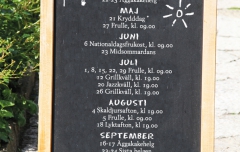 22-23 Äggakakehelg
MAJ
21 Krydddag *
27 Frulle, kl. 09.00
JUNI
6 Nationaldagsfrukost, kl. 09.00
23 Midsommardans
JULI
1, 8, 15, 22, 29 Frulle, kl. 09.00
12 Grillkväll, kl. 19.00
20 Jazzkväll, kl. 19.00
26 Grillkväll, kl. 19.00
AUGUSTI
4 Skaldjursafton, kl. 19.00
5 Frulle, kl. 09.00
18 Lyktafton, kl. 19.00
SEPTEMBER
16-17 Äggakakehelg
23-24 Sista helgen